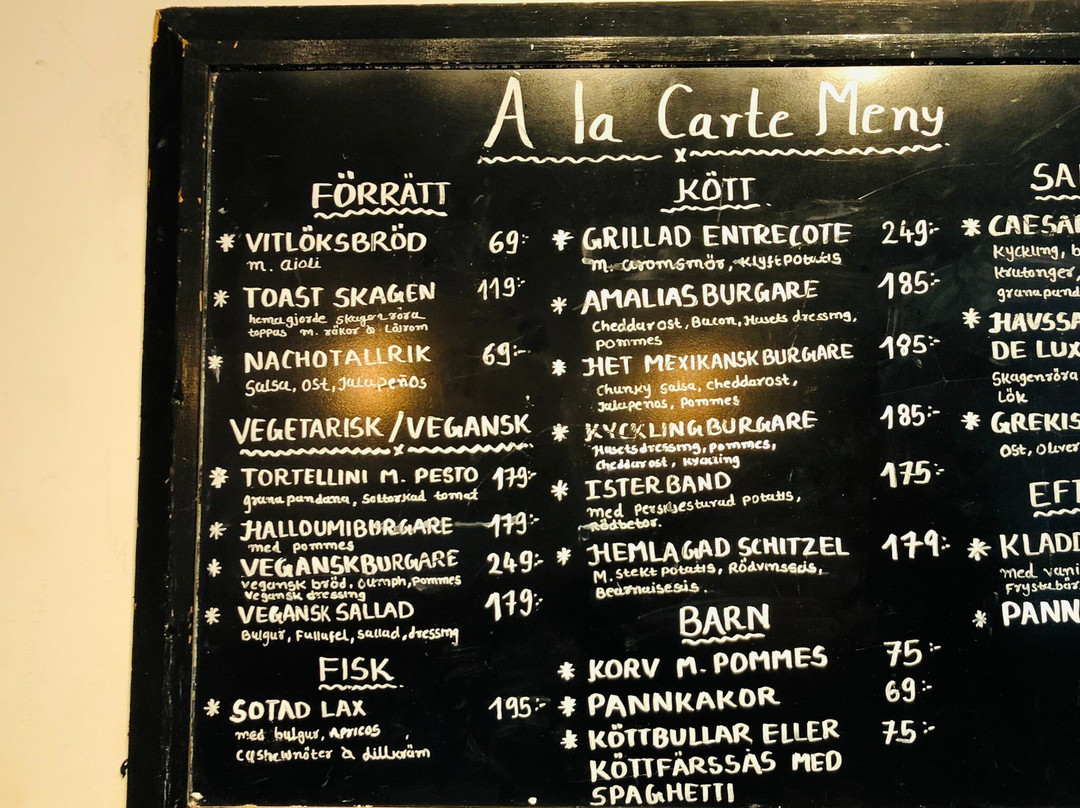 A la Carte Meny
FÖRRÄTT
* VITLÖKSBRÖD 69:-
m. aioli
* TOAST SKAGEN 119:-
hemagjorde skagenröra
toppas m. räkor & Löjrom
* NACHOTALLRIK 69:-
Salsa, Ost, Jalapeños
VEGETARISK/VEGANSK
* TORTELLINI M. PESTO 179:-
grana pandana, Soltorkad tomat
* HALLOUMIBURGARE 179:-
med pommes
* VEGANSKBURGARE 249:-
vegansk bröd, Oumph, Pommes
Vegansk dressing
* VEGANSK SALLAD 179:-
Bulgur, Fullafel, sallad, dressing
FISK
* SOTAD LAX 195:-
med bulgur, Apricos,
Cashewnöter & dillkräm
KÖTT
* GRILLAD ENTRECOTE 249:-
m. aromsmör, Klyftpotatis
* AMALIAS BURGARE 185:-
Cheddarost, Bacon, Husets dressing,
pommes
* HET MEXIKANSK BURGARE 185:-
Chunky Salsa, cheddarost,
Jalapenos, Pommes
* KYCKLINGBURGARE 185:-
Husets dressing, pommes,
Cheddarost, kyckling
* ISTERBAND 175:-
med Persiljesturad potatis,
Rödbetor.
* HEMLAGAD SCHITZEL 179:-
M. stekt potatis, Rödvinssås,
Bearnaisesås.
BARN
* KORV M. POMMES 75:-
* PANNKAKOR 69:-
* KÖTTBULLAR ELLER 75:-
KÖTTFÄRSSÅS MED
SPAGHETTI
SA
* CAESA
Kyckling, b
Krutonger,
grana pand
* HAVSSA
DE LUX
Skagenröra
Lök
* GREKIS
Ost, Oliver
EFT
* KLADD
med vani
Frystabär
* PANN